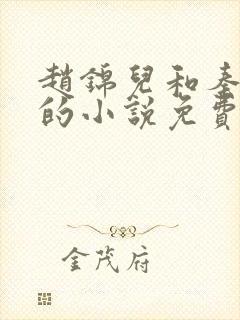 趙錦兒和秦
的小說免費
金茂府